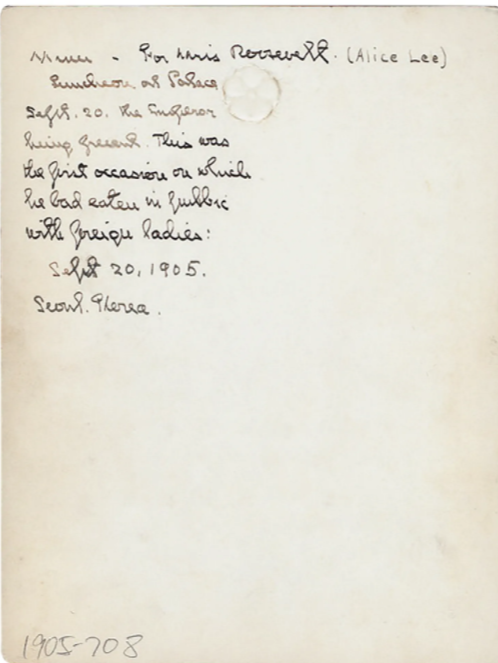 Menu - For Miss Roosevelt. (Alice Lee)
Luncheon at Palace
Sept. 20. the Emperor
being present. This was
the first occasion on which
he had eaten in public
with foreign ladies:
Sept 20, 1905.
Seoul. Korea.
1905-708